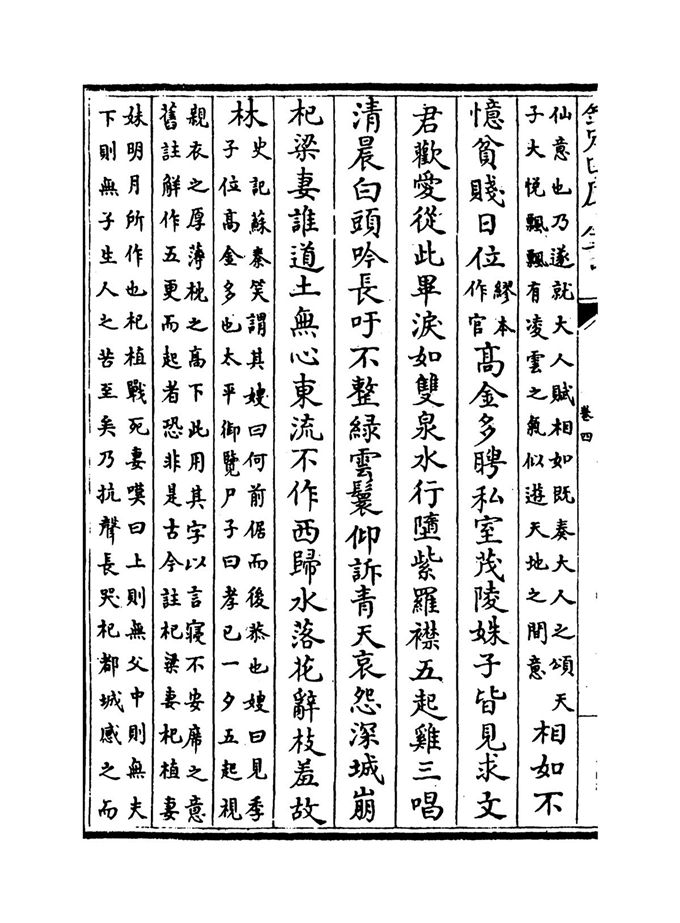 卷四
仙意也乃遂就大人賦相如既奏大人之頌天
子大悅飄飄有凌雲之氣似遊天地之間意
相如不
憶貧賤日位
繆本
作官
髙金多聘私室茂陵姝子皆見求文
君歡愛從此畢淚如雙泉水行墮紫羅襟五起雞三唱
清晨白頭吟長吁不整綠雲鬟仰訴青天哀怨深城崩
杞梁妻誰道土無心東流不作西歸水落花辭枝羞故
林
史記蘇秦笑謂其嫂曰何前倨而後恭也嫂曰見季
子位髙金多也太平御覽尸子曰孝已一夕五起視
親衣之厚薄枕之髙下此用其字以言寢不安席之意
舊註解作五更而起者恐非是古今註杞梁妻杞植妻
妹明月所作也杞植戰死妻嘆曰上則無父中則無夫
下則無子生人之苦至矣乃抗聲長哭杞都城感之而